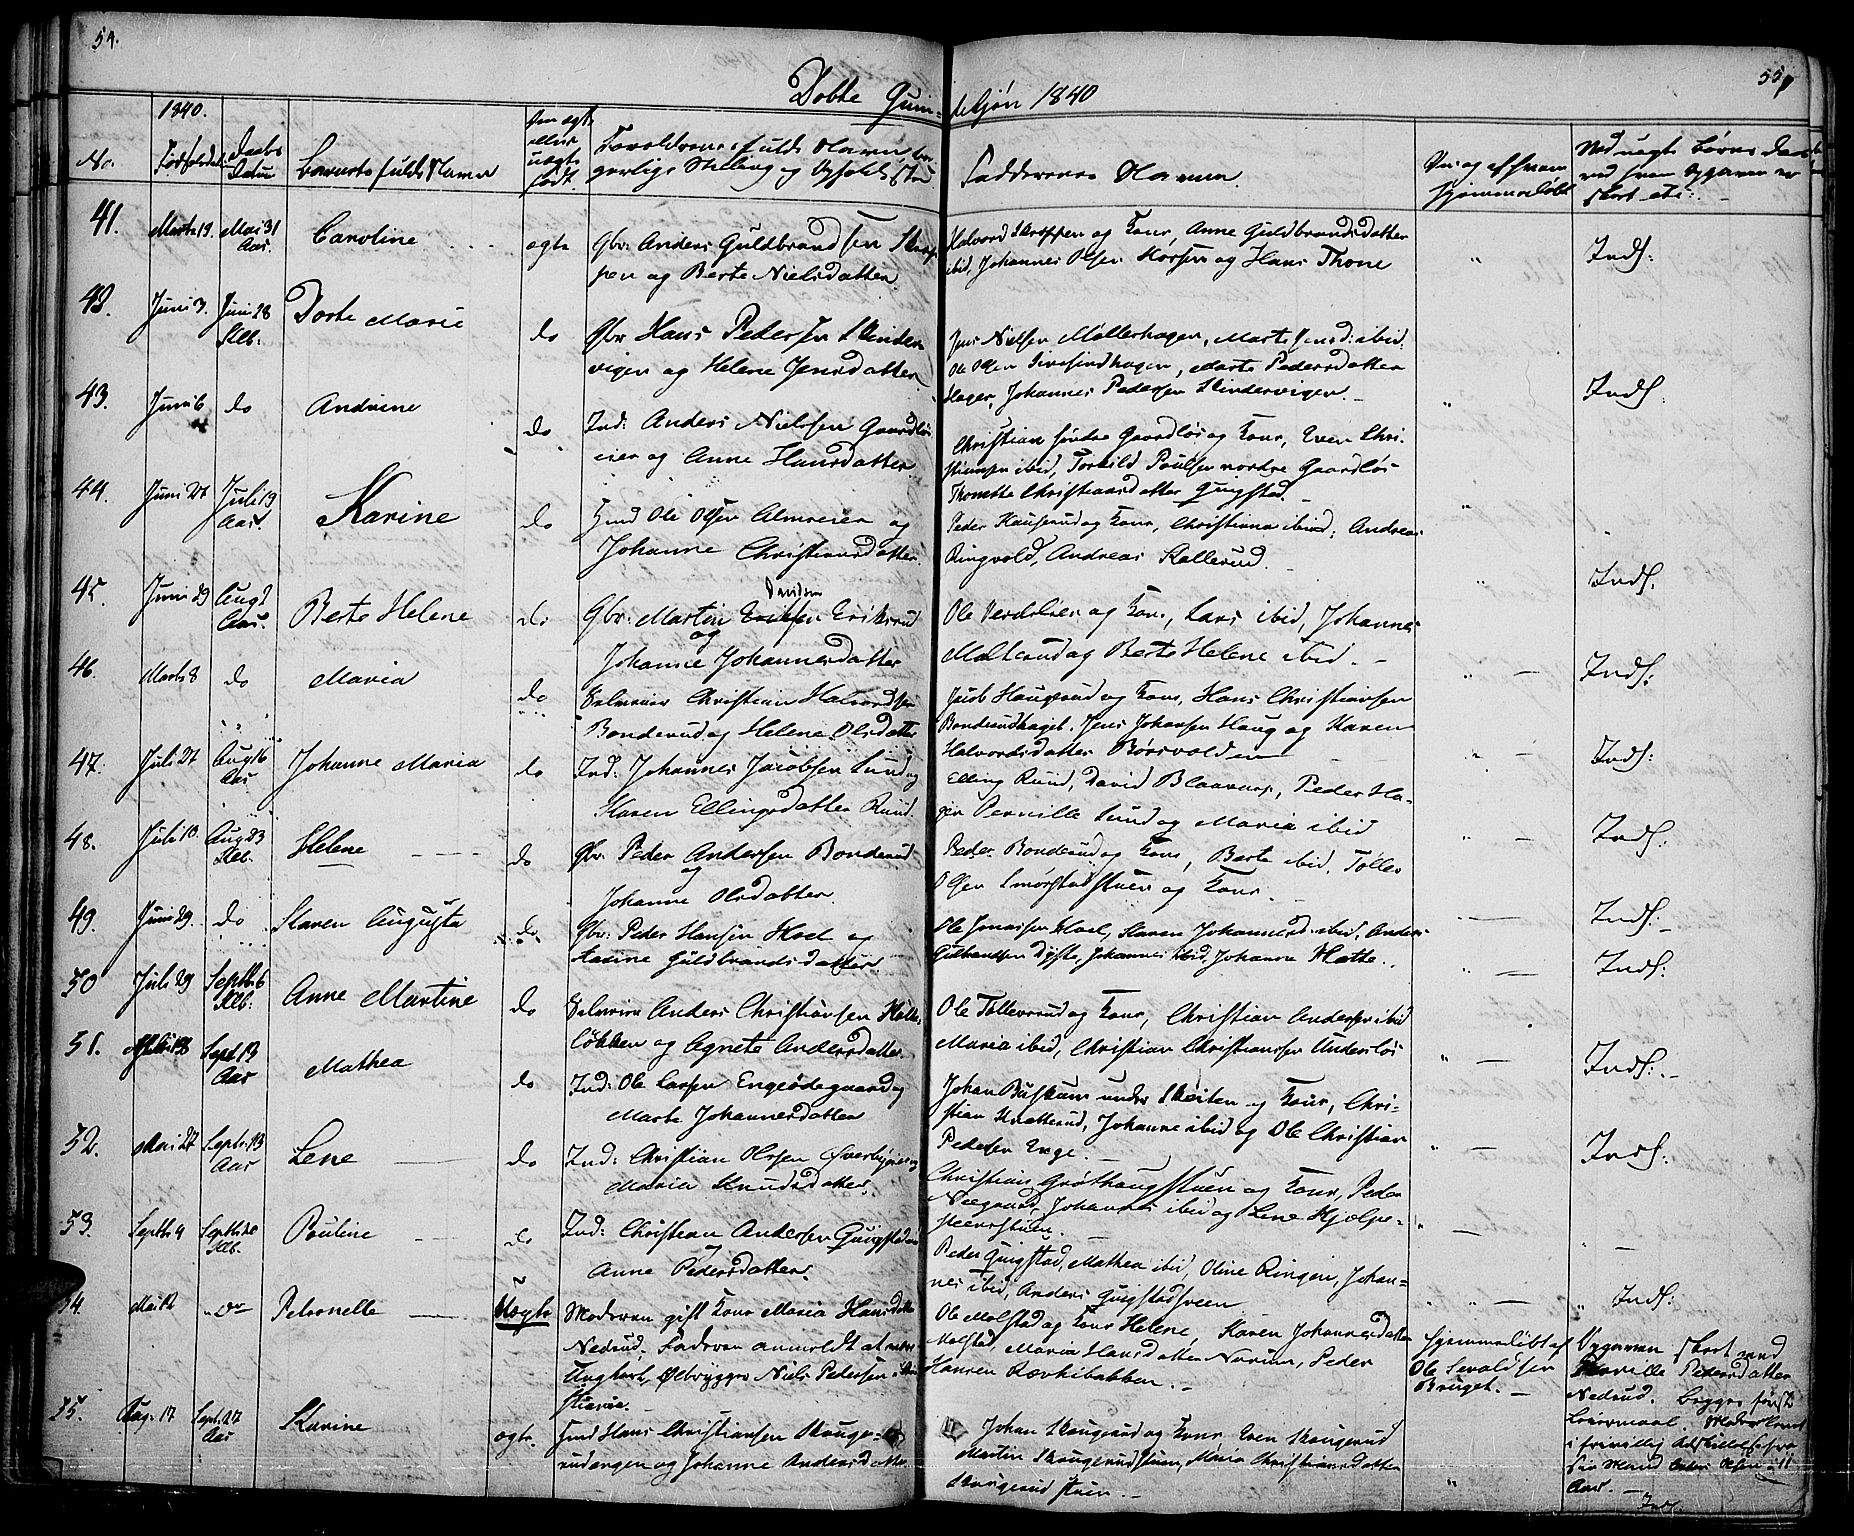 54.
55
Døbte Quindekjön 1840
1840.
No.
Fødselsdatum
Daabs Datum
Barnets fulde Navn
Om ægte eller uægte født.
Forældrenes fulde Navne borgerlige Stilling og Opholdssted
Faddernes Navne.
Om og af hvem hjemmedøbt
Ved uægte Børns Daab
41. Marts 19. Mai 31 Aas. Caroline ægte Gbr: Anders Guldbrandsen
pen og Berte Nielsdatter.
Halvord Skreppen og Kone, Anne Guldbrandsdatter
ibid, Johannes Olsen Korsen og Hans Thone
" Inds:
42. Juni 3. Juni 28 Klb. Dorte Marie do Gbr Hans Pedersen Skinder
vigen og Helene Jensdatter
Jens Nielsen Møllerhagen, Marte Jensd: ibid:
Ole Olsen, Marte Pedersdatter
Hagen, Johannes Pedersen Skindervigen.
" Inds:
43. Juni 6 do Andrine do Ind: Anders Nielsen Gaardløs
eier og Anne Hansdatter
Christian søndre Gaardløs og Kone, Even Chri-
stiansen ibid, Torkild Paulsen nordre Gaardløs
Thonette Christiansdatter Quigstad.
44. Juni 27 Juli 19 Aas. Karine do Hmd Ole Olsen Almseier og
Johanne Christiansdatter
Peder Hauserud og Kone, Christiane ibid; Andreas
Ringvold, Andreas Kallerud.
" Inds.
45. Juni 29 Aug 2 Aas. Berte Helene do Gbr: Martin Eriksen Eriksrud
Davidsen
og
Johanne Johannesdatter
Ole og Kone, Lars ibid, Johannes
Melterud og Berte Helene ibid.
Inds:
46. Marts 8 do Maria do Christian Halvordsen
Bonderud og Helene Olsdatter
Jacob Haugsrud og Kone, Hans Christiansen
Bonderudhaget. Jens Johansen Haug og Karen
Halvordsdatter Børsvolden
Inds:
47. Juli 27 Aug 16 Aas Johanne Maria do Ind: Johannes Jacobsen Lund og
Karen Ellingsdatter Ruud.
Elling Ruud, David Blaavarp, Peder Ha-
gen Pernille Lund og Maria ibid
Inds:
48. Juli 10. Aug 23 Klb. Helene do Gbr. Peder Andersen Bonderud
og
Johanne Olsdatter.
Peder Bonderud og Kone, Berte ibid. Tolles
Olsen Smørstadstuen og Kone.
Inds:
49. Juni 29. do Karen Augusta do Gbr: Peder Hansen Hoel og
Karine Guldbrandsdatter
Ole Jonassen Hoel, Karen Johannesd. ibid, Anders
Gulbrandsen Dyste, Johannes ibid, Johanne Hatte.
Inds:
50 Juli 29 Septbr 6 Klb. Anne Martine do Anders Christiansen
løkken og Agnete Andersdatter
Ole Tollevsrud og Kone, Christian Andersen ibid
Maria ibid, Christian Christiansen Underløs
Inds:
51. Sept. 13 Aas Mathea do Ind: Ole Larsen Engeødegaard og
Marte Johannesdatter
Johan under Skeiten og Kone, Chri-
stian Knatterud, Johanne ibid og Ole Christian
Pedersen Enge.
Inds:
52. Mai 27 Septr. 13 Aas Lene do Ind: Christian Olssen Øverbyeie og
Maria Knudsdatter
Christian Grøthaugstuen og Kone, Peder
Nægaard, Johannes ibid og Lene Hjelpe-
steenstuen.
53. Septb 4 Septb. 20 Klb. Pauline do Ind: Christian Andersen Quigstad
Anne Pedersdatter.
Peder Quigstad, Mathea ibid, Oline Ringen, Johan-
nes ibid, Anders Quigstadsveen
" Inds:
54. Mai 12 do Petronelle Uægte Moderen gift Kone Maria Hansdatter
Nedrud. Faderen anmeldt at være
Ungkarl, Ølbrygger Niels Pedersen i Chri
stiania.
Ole Molstad og Kone Helene, Karen Johannesdatter
Molstad, Maria Hansdatter Narum, Peder
Hansen Rævkibakken.
Hjemmedøbt af
Ole Sevaldsen
Bruget.
Opgaven skeet ved
Pernille Pedersdatter
Nedrud. Begges første
Leiermaal. Moderen levet
i frivillig Adskillelse fra
sin Mand Olsen i 11
Aar.
55. Aug. 17 Sept. 27 Aas Karine ægte. Hmd Hans Christiansen Skouge-
rudengen og Johanne Andersdatter
Johan Skougerud og Kone, Even Skougerud
Martin Skougerudstuen, Maria Christiansdatter
Skougerudstuen.
" Inds.